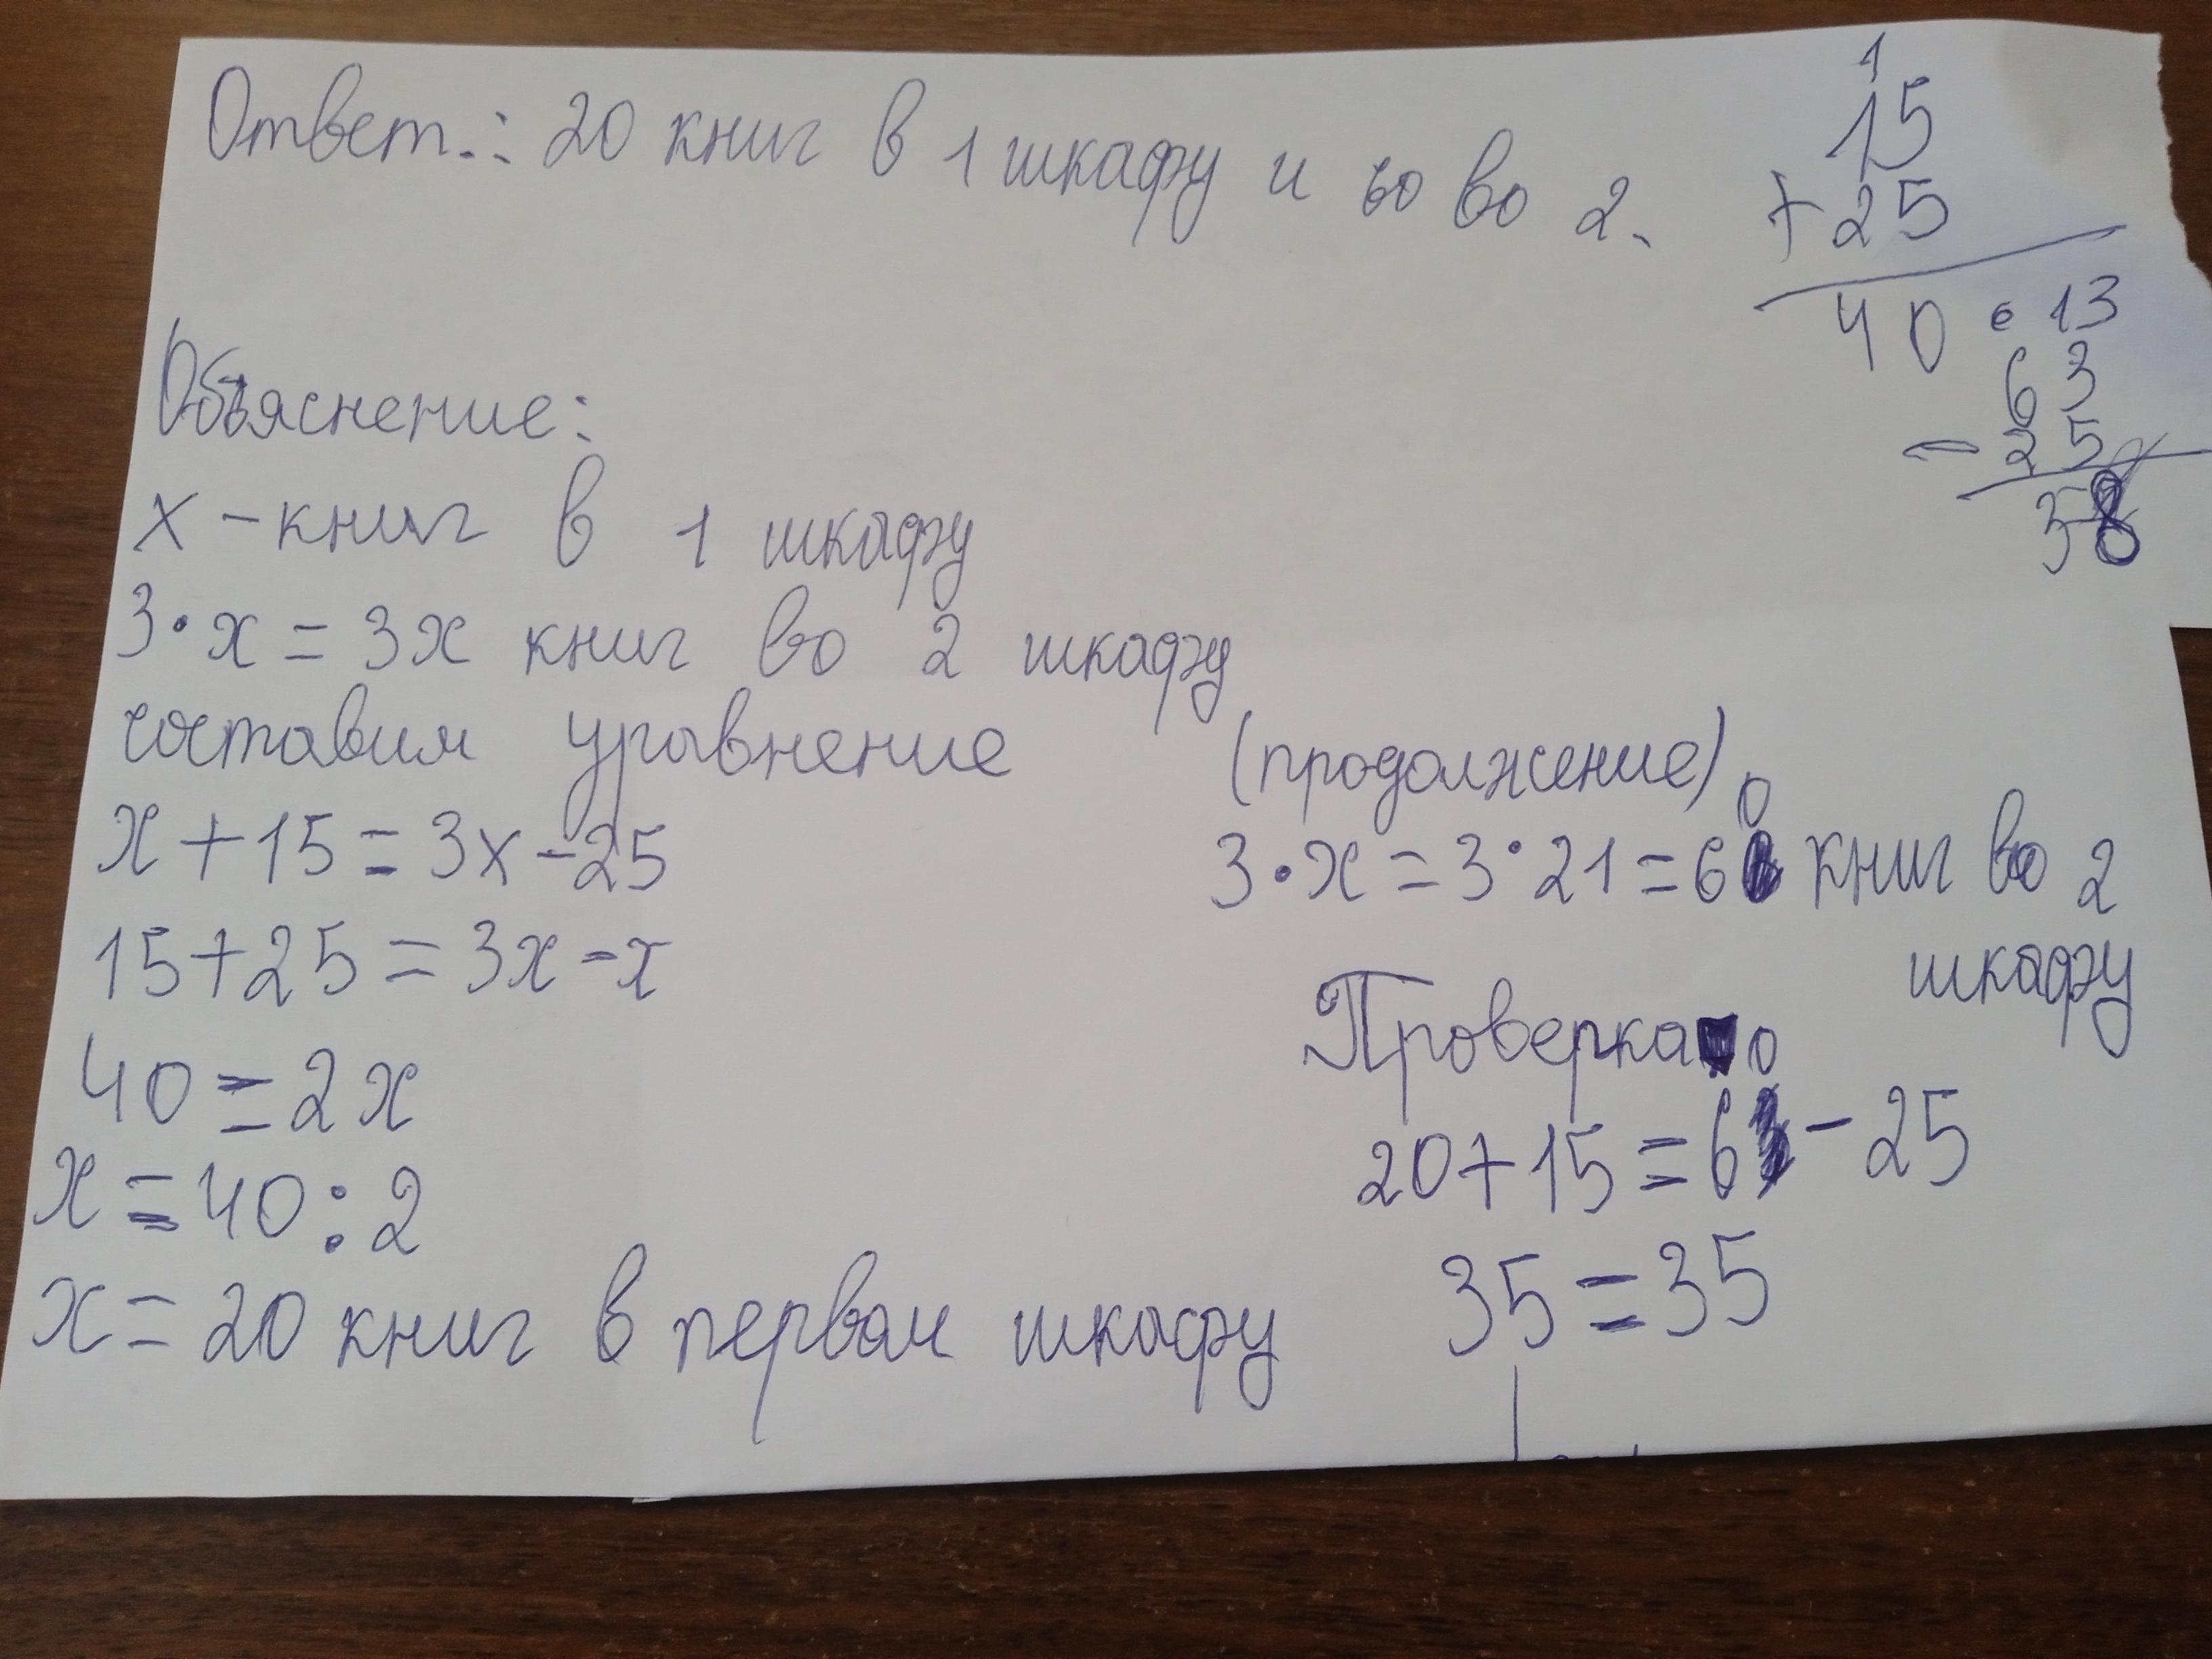 Ответ.: 20 книг в 1 шкафу и 60 во 2.
1
15
+25
40
• 13
63
- 25
38
Объяснение:
x - книг в 1 шкафу
3•x = 3x книг во 2 шкафу
составим уравнение
x + 15 = 3x - 25
15 + 25 = 3x - x
40 = 2x
x = 40 : 2
x = 20 книг в первом шкафу
(продолжение)
3•x = 3•21 = 60 книг во 2
шкафу
Проверка
20 + 15 = 60 - 25
35 = 35